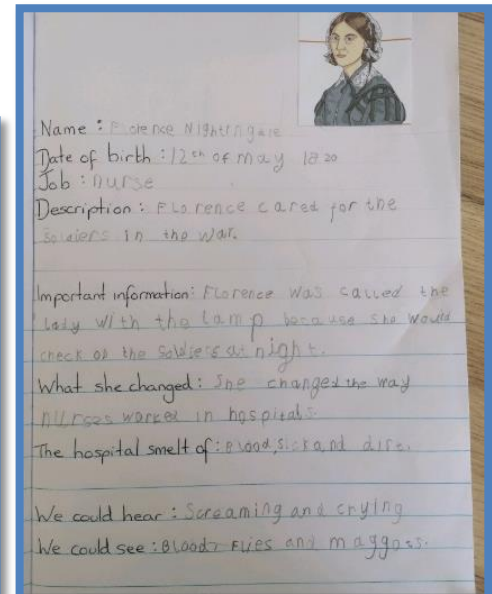 Name : Florence Nightingale
Date of birth : 12th of may 1820
Job : nurse
Description : Florence cared for the
soldiers in the war.
Important information: Florence was called the
lady with the lamp because she would
check on the soldiers at night.
What she changed : She changed the way
nurses worked in hospitals.
The hospital smelt of : Blood, sick and dirt.
We could hear : Screaming and crying
We could see : Blood, Flies and maggots.